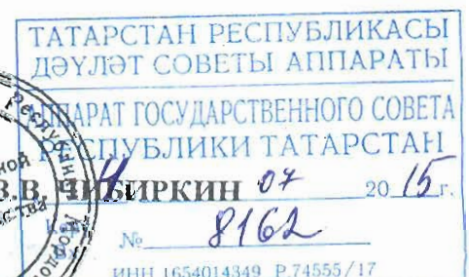 ТАТАРСТАН РЕСПУБЛИКАСЫ
ДӘҮЛӘТ СОВЕТЫ АППАРАТЫ
АППАРАТ ГОСУДАРСТВЕННОГО СОВЕТА
РЕСПУБЛИКИ ТАТАРСТАН
В.В. ЧИБИРКИН 07 2015 г.
№ 8162
ИНН 1654014349 Р.74555/17